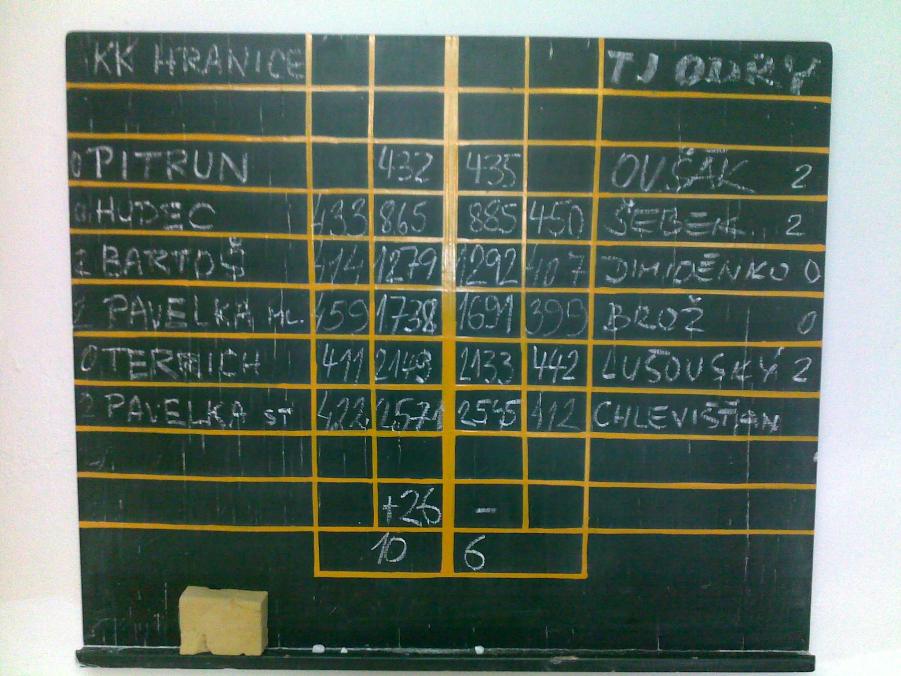 KK HRANICE TJ ODRY
0 PITRUN 432 435 OVŠÁK 2
0 HUDEC 433 865 885 450 ŠEBEK 2
2 BARTOŠ 414 1279 1292 407 DIMIDENKO 0
2 PAVELKA ML. 459 1738 1691 399 BROŽ 0
0 TERMICH 411 2149 2133 442 LUŠOVSKÝ 2
2 PAVELKA ST 422 2571 2545 412 CHLEVIŠŤAN
+26 –
10 6